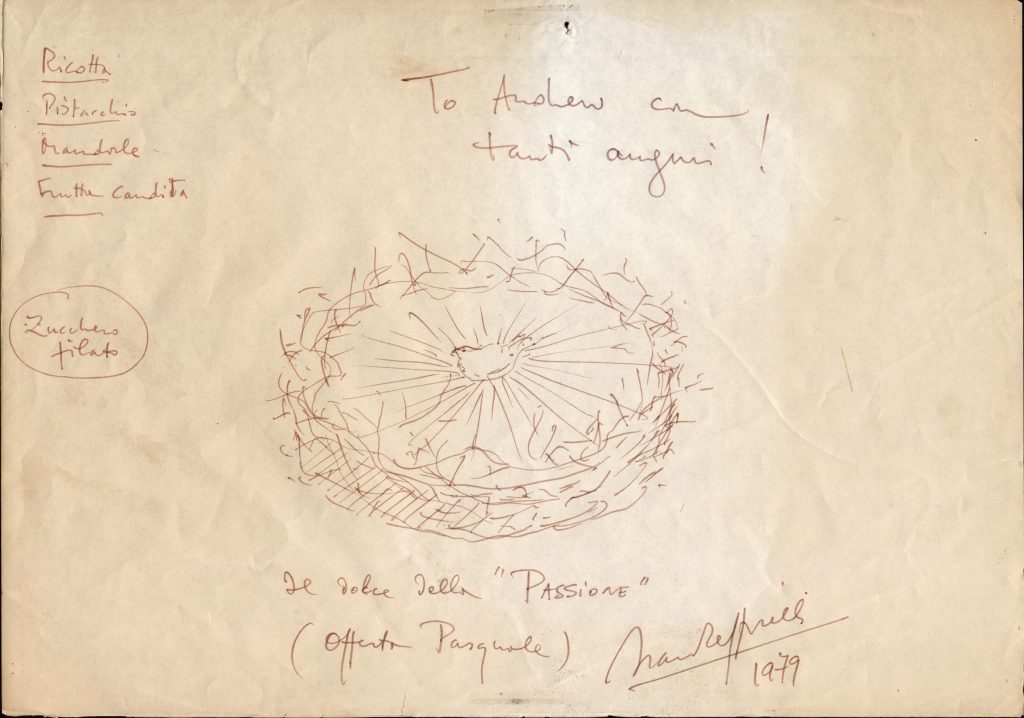 Ricotta
Pistacchio
Mandorle
Frutta candita
Zucchero
filato
To Andrew con
tanti auguri!
Il dolce della "PASSIONE"
(Offerta Pasquale)
1979